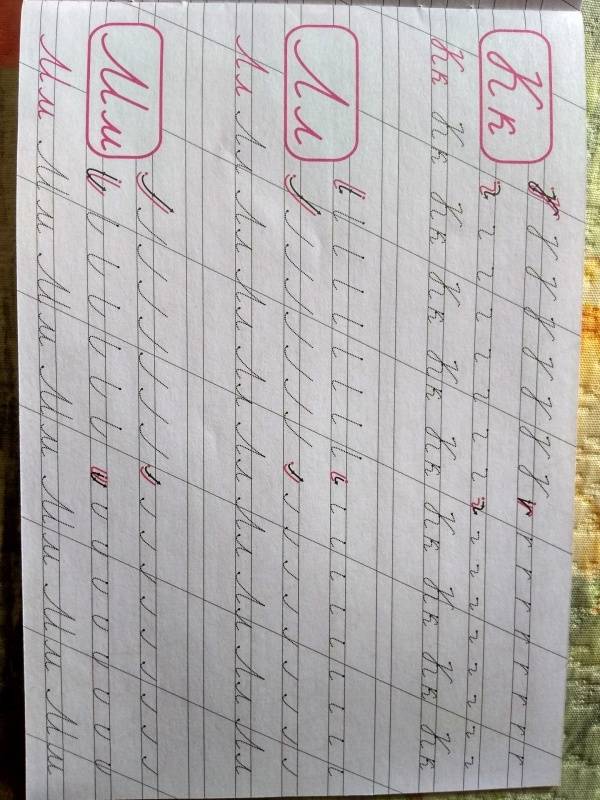 Кк
Кк Кк Кк Кк Кк Кк Кк Кк Кк Кк
Лл
Лл Лл Лл Лл Лл Лл Лл Лл Лл Лл Лл
Мм
Мм Мм Мм Мм Мм Мм Мм Мм